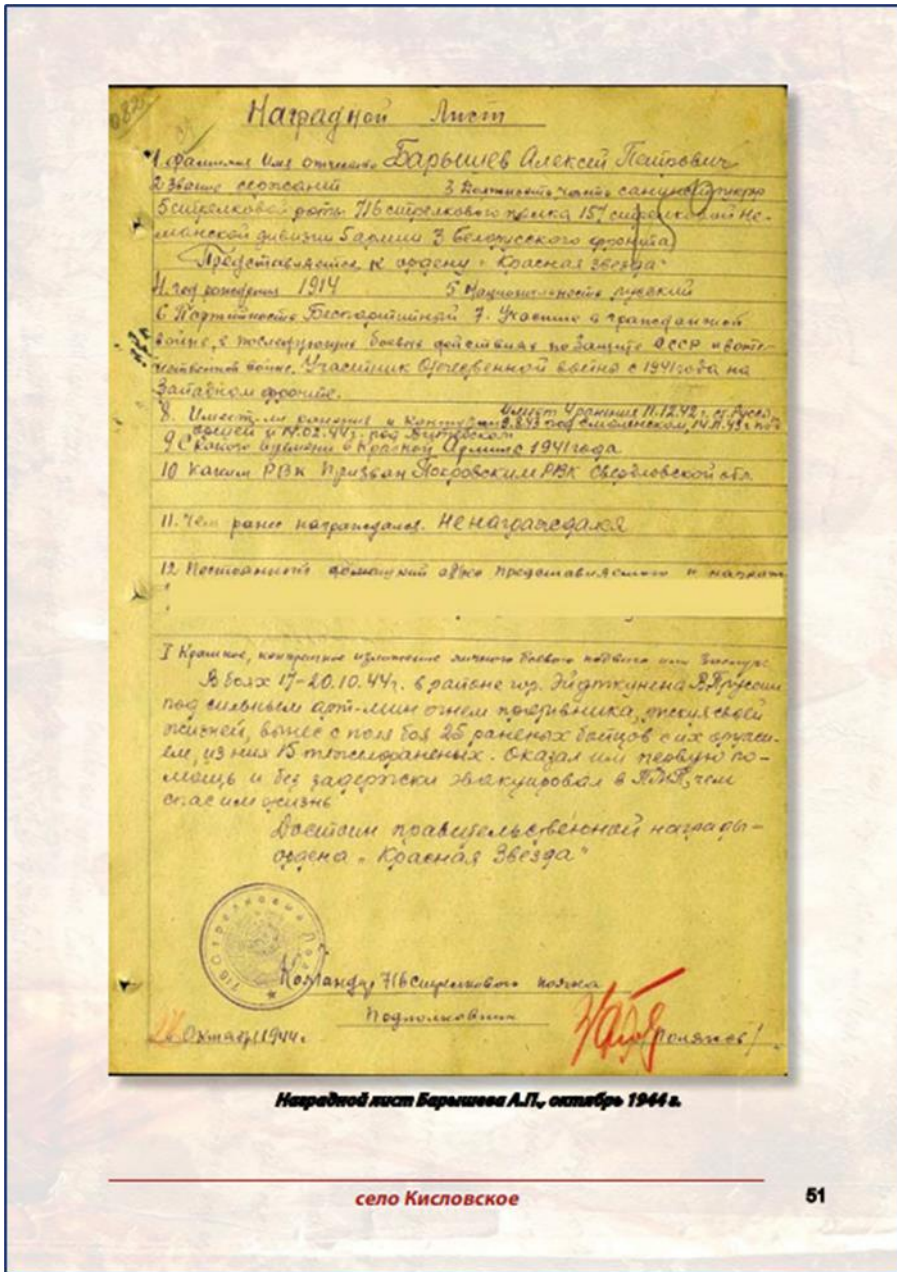 Наградной Лист
1 Фамилия Имя отчество Барышев Алексей Петрович
2 Звание сержант 3 Должность часть санинструктор
5 стрелковой роты 716 стрелкового полка 157 стрелковой Не-
манской дивизии 5 армии 3 белорусского фронта
Представляется к ордену "Красная звезда"
4. год рождения 1914 5 Национальность русский
6 Партийность Беспартийный 7. Участие в гражданской
войне, в последующих боевых действиях по защите СССР и в оте-
чественной войне. Участник Отечественной войны с 1941 года на
Западном фронте.
8. Имеет ли ранения и контузии Имеет 4 ранения 11.12.42 г.
под Смоленском, под
и 14.02.44 г. под Витебском
9 С какого времени в Красной Армии с 1941 года
10 Каким РВК Призван Покровским РВК Свердловской обл.
11. Чем ранее награждался. Не награждался
12 Постоянный домашний адрес представляемого к
I Краткое, конкретное изложение личного боевого подвига или заслуг.
В боях 17-20.10.44 г. в районе гор. Эйдткунена В. Пруссии
под сильным арт-мин огнем противника, рискуя своей
жизней, вынес с поля боя 25 раненых бойцов с их оружи-
ем, из них 15 тяжелораненых. Оказал им первую по-
мощь и без задержки эвакуировал в ПМП, чем
спас им жизнь
Достоин правительственной награды -
ордена "Красная Звезда"
Командир 716 стрелкового полка
Подполковник
Октября 1944 г.
Наградной лист Барышева А.П., октябрь 1944 г.
село Кисловское 51